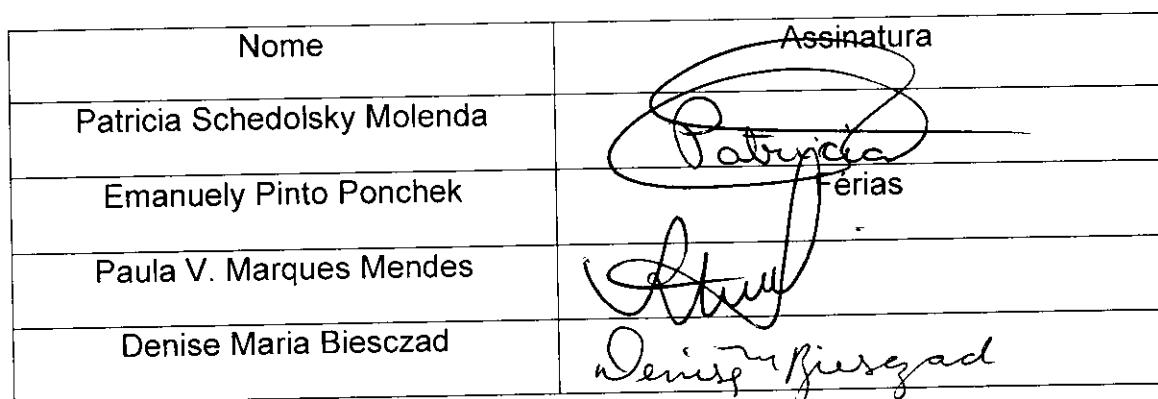 Nome Assinatura
Patricia Schedolsky Molenda Patricia
Emanuely Pinto Ponchek Férias
Paula V. Marques Mendes
Denise Maria Biesczad Denise Biesczad